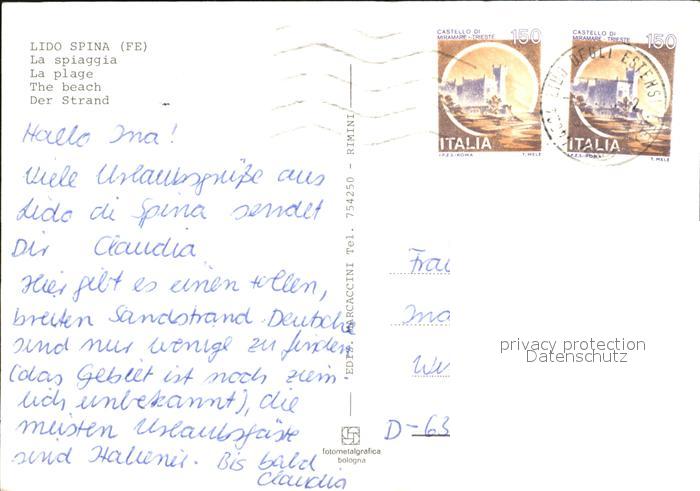 LIDO SPINA (FE)
La spiaggia
La plage
The beach
Der Strand
Hallo Ina!
Viele Urlaubsgrüße aus
Lido di Spina sendet
Dir Claudia
Hier gibt es einen tollen,
breiten Sandstrand. Deutsche
sind nur wenige zu finden
(das Gebiet ist noch ziem-
lich unbekannt), die
meisten Urlaubsgäste
sind Italiener. Bis bald
Claudia
EDIZ. MARCACCINI Tel. 754250 - RIMINI
fotometalgrafica
bologna
CASTELLO DI
MIRAMARE - TRIESTE
150
ITALIA
I.P.Z.S. - ROMA
T. MELE
CASTELLO DI
MIRAMARE - TRIESTE
150
ITALIA
I.P.Z.S. - ROMA
T. MELE
LIDO DEGLI ESTENSI
Frau
Ina
D-63
privacy protection
Datenschutz